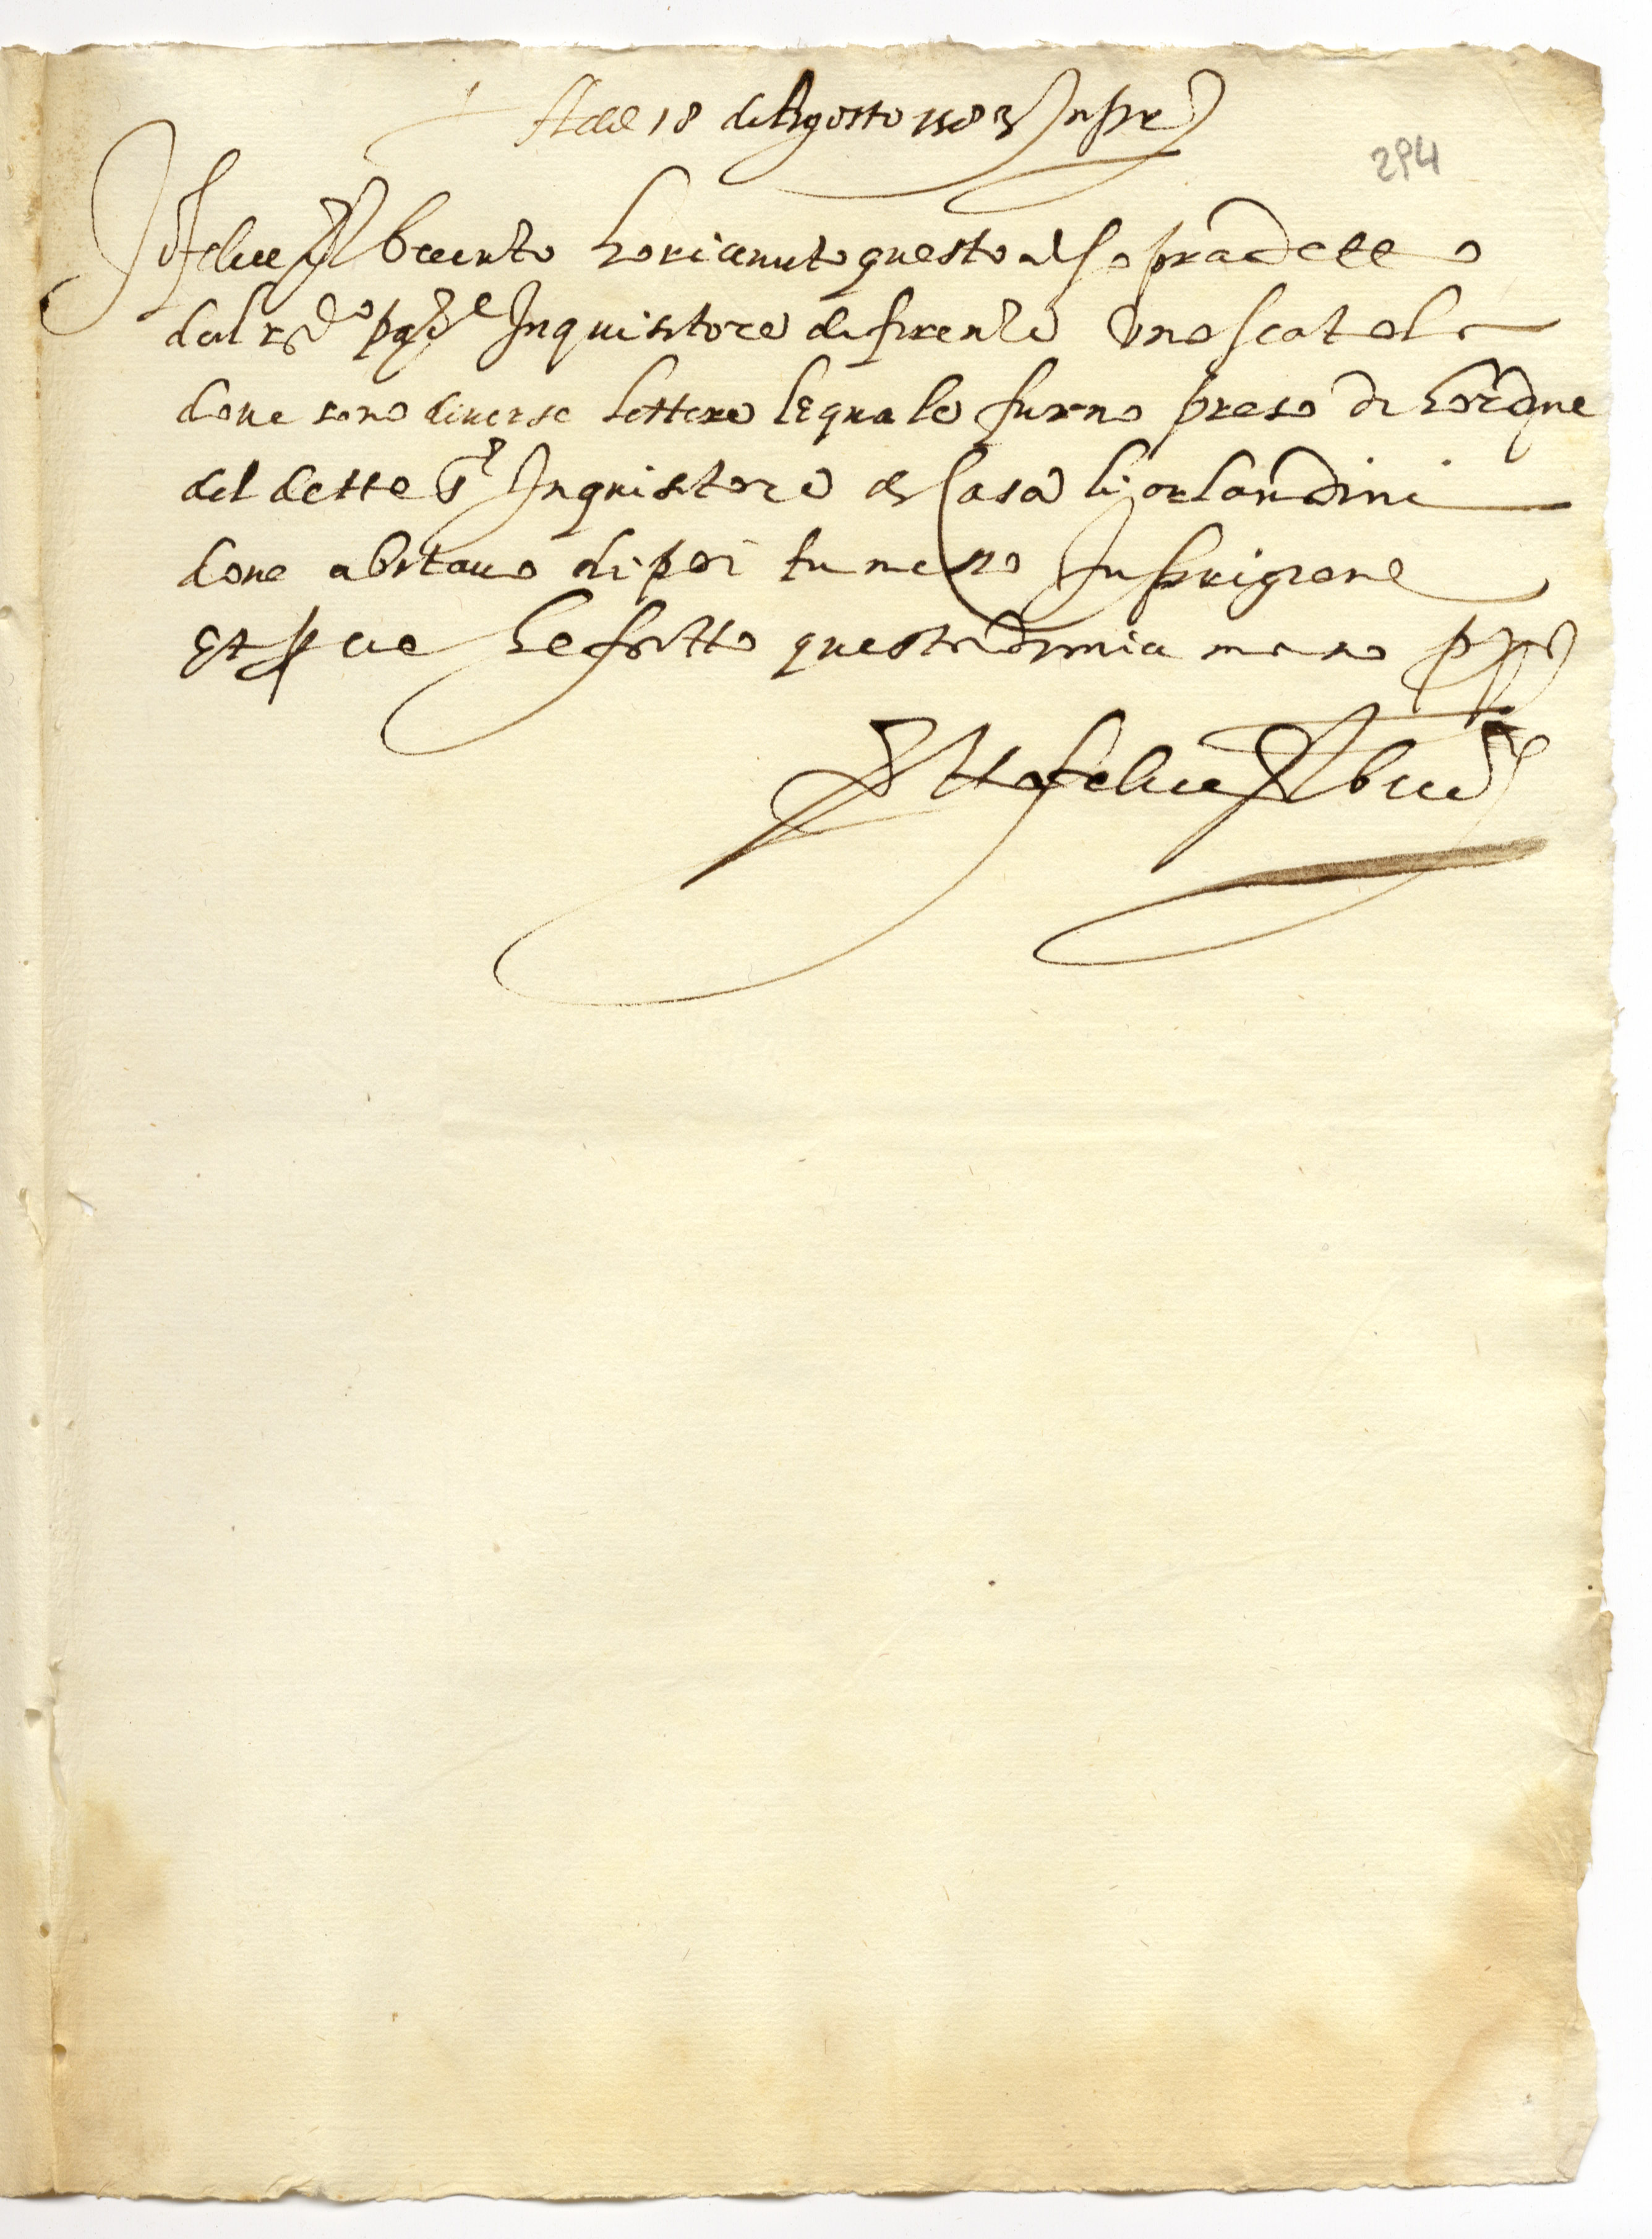 Adi 18 di Agosto 1583 In
294
Io felice ho riceuuto questo di sopradetto
dal r.do pad.e Inquisitore di firenze una scatola
doue sono diuerse lettere lequale furno prese di hordine
del detto p.e Inquisitore di Casa li orlandini
doue abitauo dipoi fu messo In prigione
Et p fe ho fatto questa di mia mano pp.a
Io felice